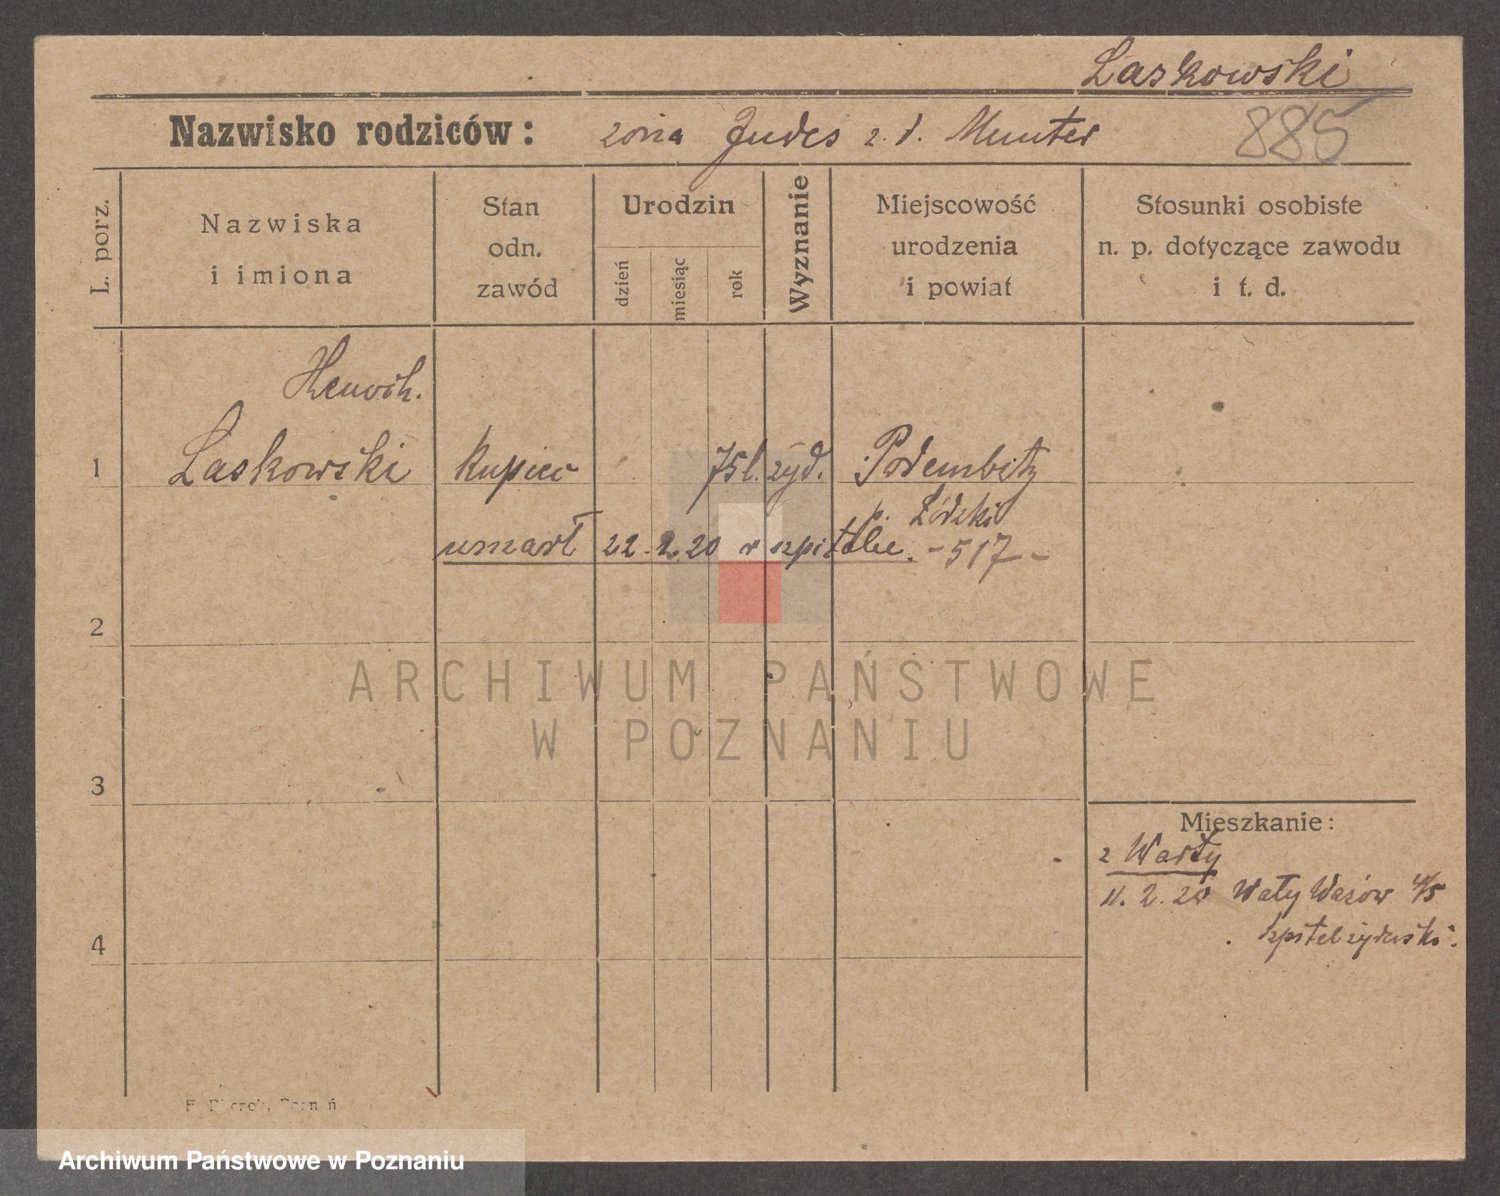 Laskowski
Nazwisko rodziców: żona Judes z. d. Munter 885
L. porz.
Nazwiska
i imiona
Stan
odn.
zawód
Urodzin
dzień
miesiąc
rok
Wyznanie
Miejscowość
urodzenia
i powiat
Stosunki osobiste
n. p. dotyczące zawodu
i t. d.
Henoch.
1 Laskowski kupiec 75 l. żyd. Podembitz
p. Łódzki
umarł 22.2.20 w szpitalu. -517-
2
3
4
ARCHIWUM PAŃSTWOWE
W POZNANIU
Mieszkanie:
z Warty
11. 2. 20 Wały Wazów 4/5
szpital żydowski.
Poznań
Archiwum Państwowe w Poznaniu